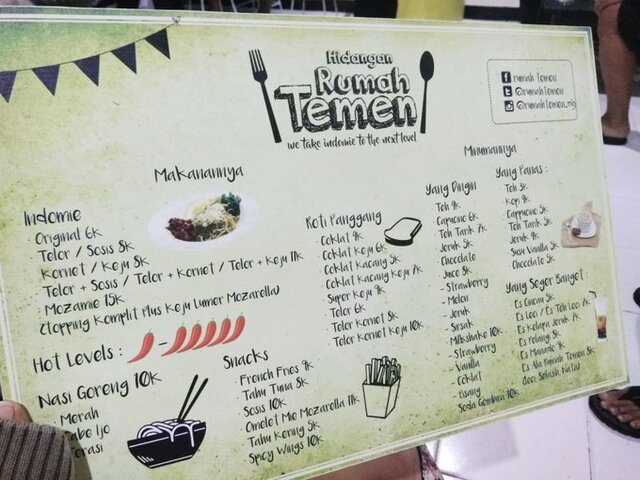 Hidangan
Rumah
Temen
we take indomie to the next level
rumah temen
@rumahtemen
@rumahtemen_mlg
Makanannya
Indomie
· Original 6k
· Telor / Sosis 8k
· Kornet / Keju 8k
· Telor + Sosis / Telor + Kornet / Telor + Keju 11k
· Mozame 15k
(Topping Komplit Plus Keju Lumer Mozarella)
Hot Levels :
-
Nasi Goreng 10k
· Merah
Cabe Ijo
Terasi
Snacks
· French Fries 9k
· Tahu Tuna 8k
· Sosis 10k
· Omelet Mie Mozarella 11k
· Tahu Kering 5k
· Spicy Wings 10k
Roti Panggang
· Coklat 4k
· Coklat Keju 6k
· Coklat Kacang 5k
· Coklat Kacang Keju 7k
· Super Keju 7k
· Telor 6k
· Telor Kornet 8k
· Telor Kornet Keju 10k
Minumannya
Yang Dingin
· Teh 4k
· Capucino 6k
· Teh Tarik 7k
· Jeruk 5k
· Chocolate
· Juice 8k
- Strawberry
- Melon
- Jeruk
- Sirsak
· Milkshake 10k
- Strawberry
- Vanilla
- Coklat
- Pisang
· Soda Gembira 10k
Yang Panas :
· Teh 3k
· Kopi 4k
· Cappucino 5k
· Teh Tarik 5k
· Jeruk 4k
· Susu Vanilla 5k
· Chocolate 5k
Yang Seger Banget :
· Es Cincau 5k
· Es Leci / Es Teh Leci 7k
· Es Kelapa Jeruk 7k
· Es Pelangi 5k
· Es Manado 9k
· Es Ala Rumah Temen 8k